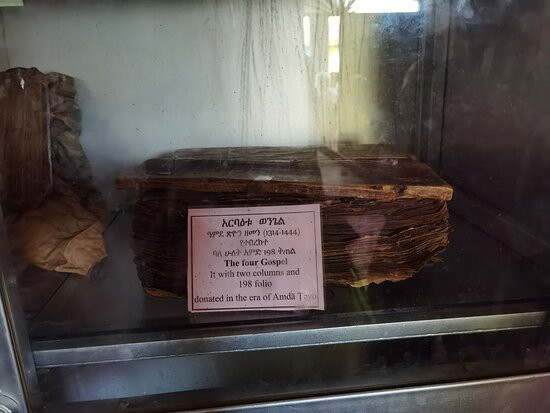 አርባዕቱ ወንጌል
ዓምደ ጽዮን ዘመን (1314-1444)
የተበረከተ
ባለ ሁለት አምድ 198 ቅጠል
The four Gospel
It with two columns and
198 folio
donated in the era of Amdä Təyo